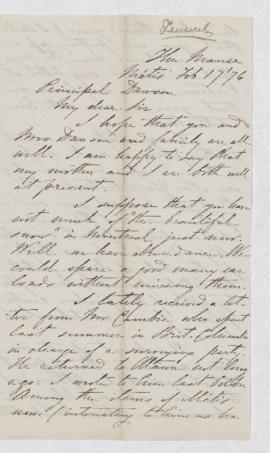 The Manse
Metis Feb 17th 76
Principal Dawson
My dear Sir
I hope that you and
Mrs Dawson and family are all
well. I am happy to say that
my mother and I are both well
at present.
I suppose that you have
not much of "the beautiful
snow" in Montreal just now.
Well, we have abundance. We
could spare a good many car
loads without missing them.
I lately received a let-
ter from Mr Cambie, who spent
last summer in Brit. Columbia
in charge of a surveying party.
He returned to Ottawa not long
ago. I wrote to him last
Among the items of Metis
news (interesting to him as he